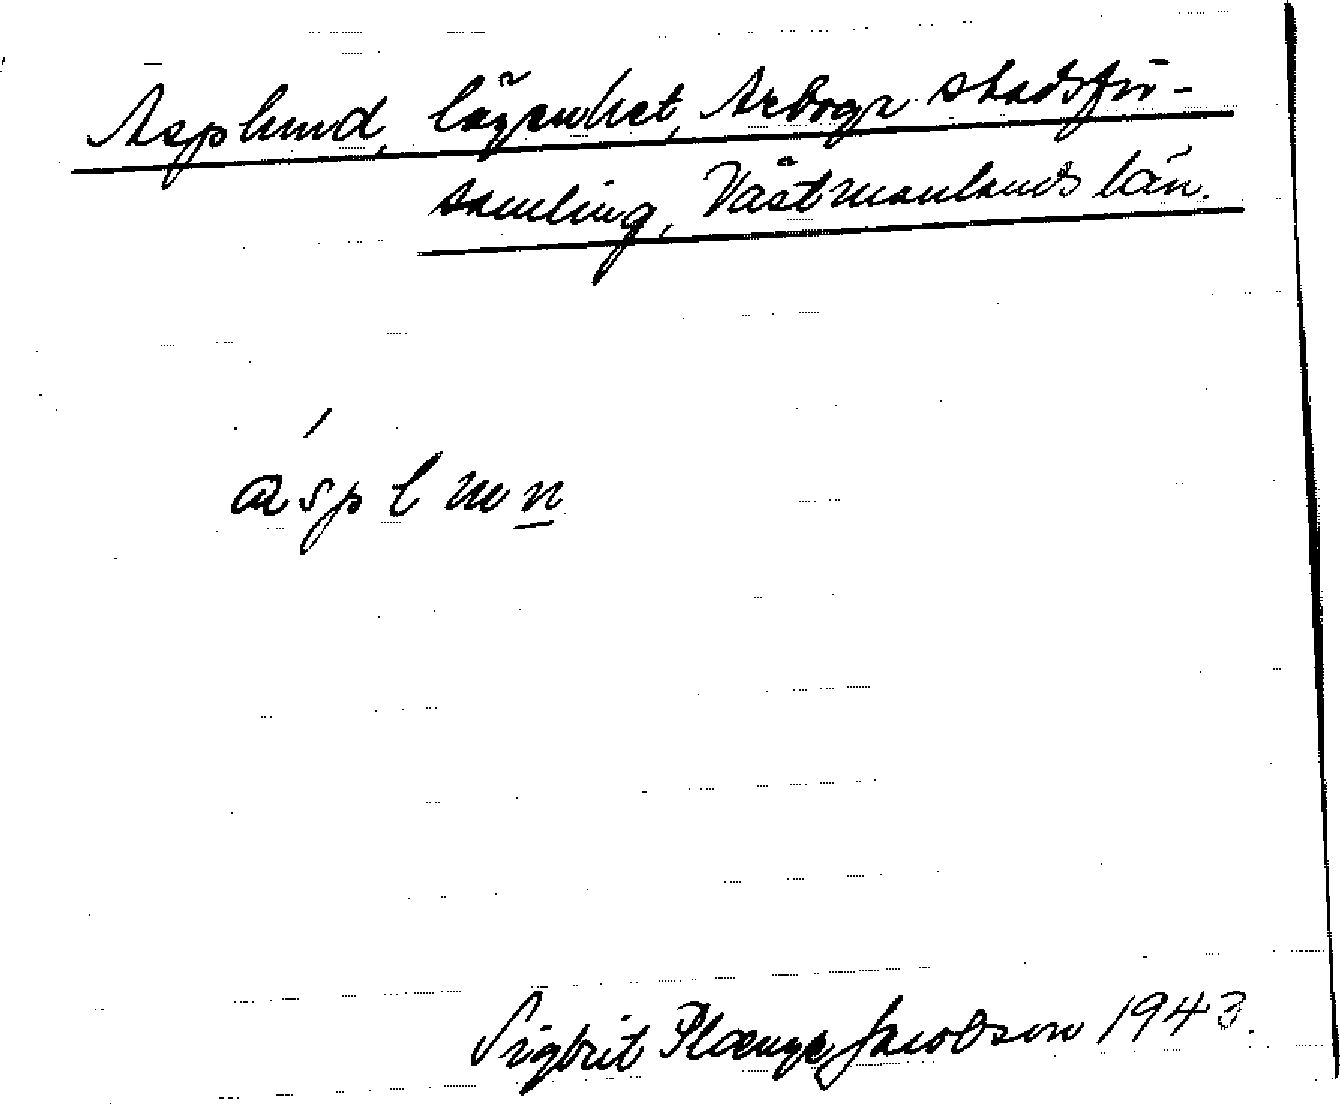 Asplund, lägenhet, Arboga stadsför-
samling, Västmanlands län.
ásplun
Sigbrit Plænge Jacobson 1943.